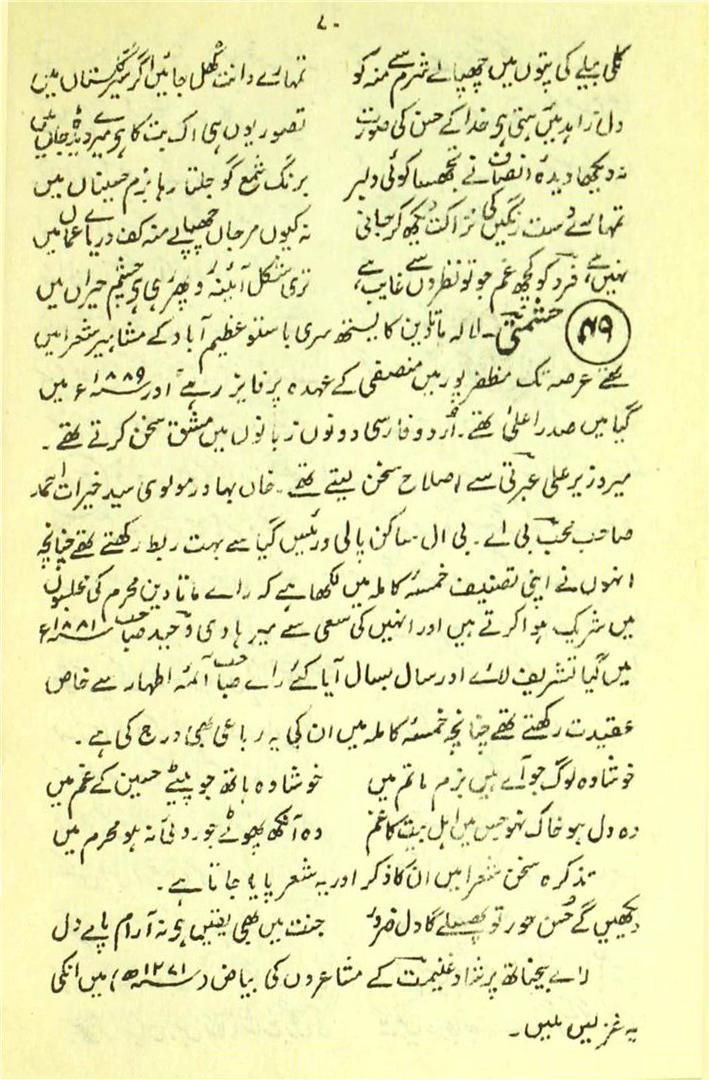 ۷۰
کلی بیلے کی پتوں میں چھپالے شرم سے منہ کو تمہارے دانت کھل جائیں اگر سیر گلستاں میں
دل زاہد میں بستی ہی خدا کے حسن کی صورت تصور یوں ہی اک بت کا ہی میرے دیدۂ جاں میں
نہ دیکھا دیدۂ انصاف نے تجھسا کوئی دلبر برنگ شمع گو جلتا رہا بزم حسیناں میں
تمہارے دست رنگیں کی نزاکت دیکھ کر جانی نہ کیوں مرجاں چھپالے منہ کف دریاے عماں میں
نہیں ہے فرد کو کچھ غم جو تو نظروں سے غایب ہے تری شکل آئینہ رو پھر رہی ہی چشم حیراں میں
۴۹ حشمتی۔ لالہ ماتادین کایستھ سری باستو عظیم آباد کے مشاہیر شعرا میں
تھے عرصہ تک مظفر پور میں منصفی کے عہدہ پر فایز رہے اور ۱۸۸۹ء میں
گیا میں صدر اعلیٰ تھے۔ اُردو فارسی دونوں زبانوں میں مشق سخن کرتے تھے۔
میر وزیر علی عبرتی سے اصلاح سخن لیتے تھے۔ خاں بہادر مولوی سید خیرات احمد
صاحب محب بی اے۔ بی ال ساکن پالی و رئیس گیا سے بہت ربط رکھتے تھے چنانچہ
انہوں نے اپنی تصنیف خمسۂ کاملہ میں لکھا ہے کہ راے ماتادین محرم کی مجلسوں
میں شریک ہوا کرتے ہیں اور انہیں کی سعی سے میر ہادی وحید صاحب ۱۸۸۱ء
میں گیا تشریف لائے اور سال بسال آیا کئے راے صاحب آئمۂ اطہار سے خاص
عقیدت رکھتے تھے چنانچہ خمسۂ کاملہ میں ان کی یہ رباعی بھی درج کی ہے۔
خوشا وہ لوگ جو آے ہیں بزم ماتم میں خوشا وہ ہاتھ جو پیٹے حسین کے غم میں
وہ دل ہو خاک نہو جسمیں اہل بیت کا غم وہ آنکھ پھوٹے جو روئی نہ ہو محرم میں
تذکرہ سخن شعرا میں ان کا ذکر اور یہ شعر پایا جاتا ہے۔
دیکھیں گے حُسن حور تو پھسلے گا دل ضرور جنت میں بھی یقیں ہی نہ آرام پاے دل
راے بیجناتھ پرشاد غنیمت کے مشاعروں کی بیاض (۱۲۷۱ھ) میں انکی
یہ غزلیں ملیں۔